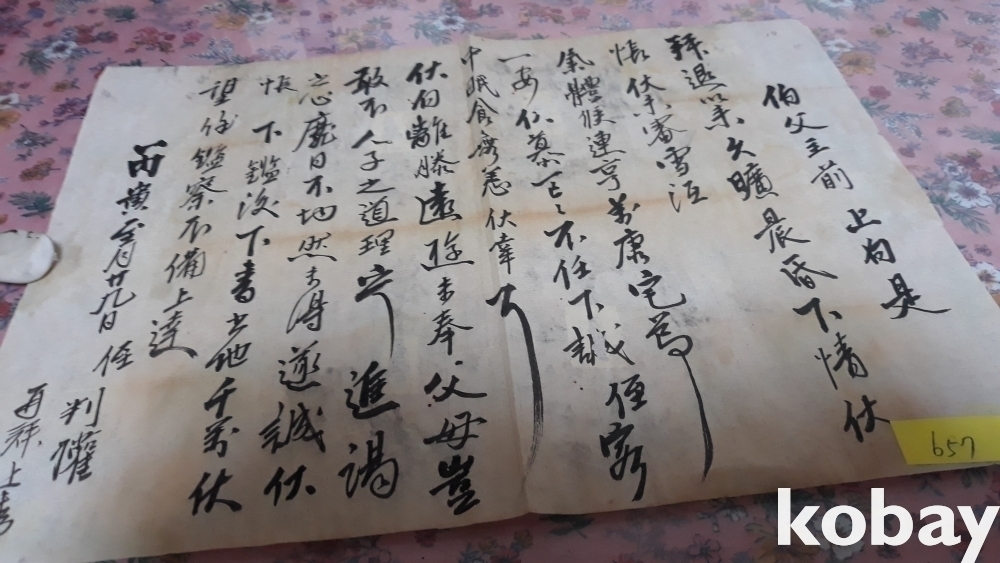 伯父主前 上白是
拜退以來久曠晨昏下情伏
悵伏未審雪沍
氣體候連亨萬康宅爲
一安仰慕區區不任下誠侄客
中眠食 恙伏幸
伏白離膝遠遊未奉父母豈
敢不人子之道理 進謁
之心靡日不切然未得遂誠伏
悵下鑑後下書 地千萬伏
望 鑑察不備上達
丙寅 月廿九日 侄
判權
再拜上書
657
kobay